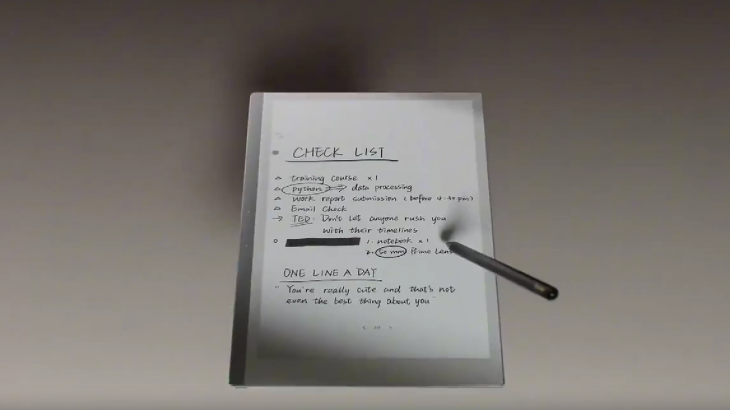 CHECK LIST
training course x1
python → data processing
Work report submission (before 4:30 pm)
Email Check
→ TED: Don't let anyone rush you
with their timelines
1. notebook x1
2. 50 mm Prime Lens
ONE LINE A DAY
"You're really cute and that's not
even the best thing about you"